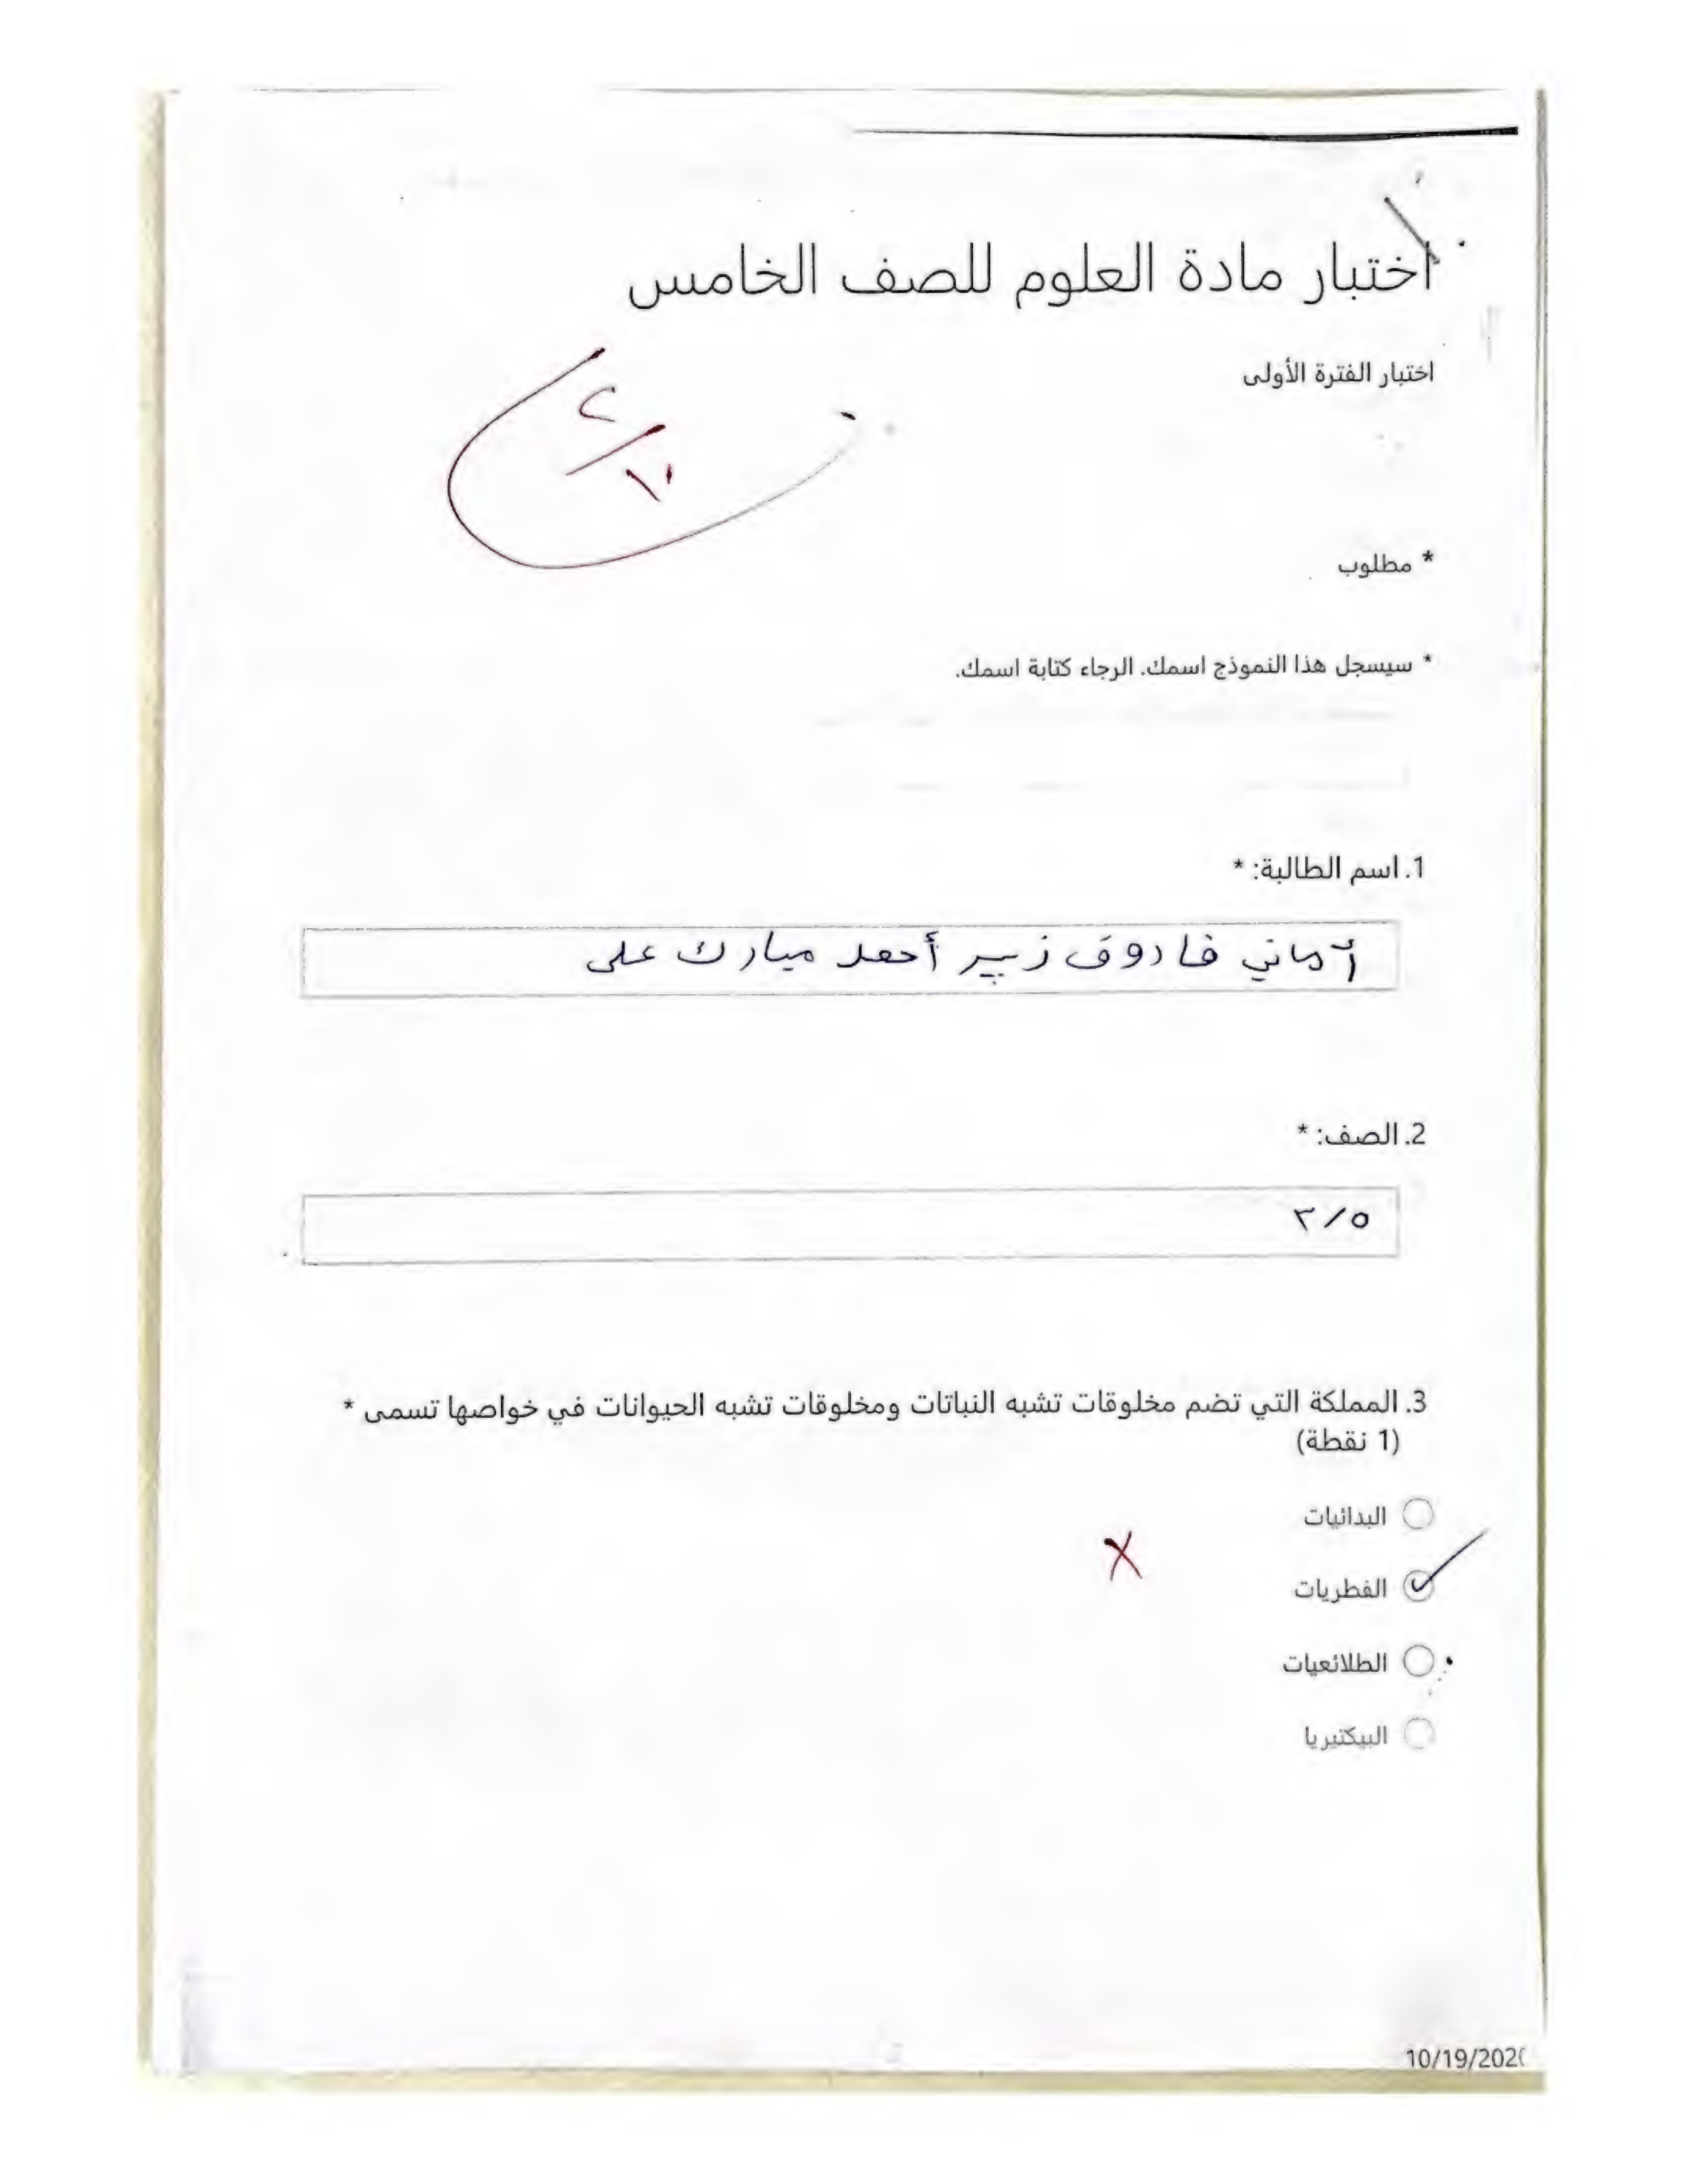 اختبار مادة العلوم للصف الخامس
اختبار الفترة الأولى
٢
٧
* مطلوب
* سيسجل هذا النموذج اسمك. الرجاء كتابة اسمك.
1. اسم الطالبة: *
أماني فاروق زبير أحمد مبارك على
2. الصف: *
٥/٣
3. المملكة التي تضم مخلوقات تشبه النباتات ومخلوقات تشبه الحيوانات في خواصها تسمى *
(1 نقطة)
البدائيات
الفطريات
الطلائعيات
البيكتيريا
10/19/2020